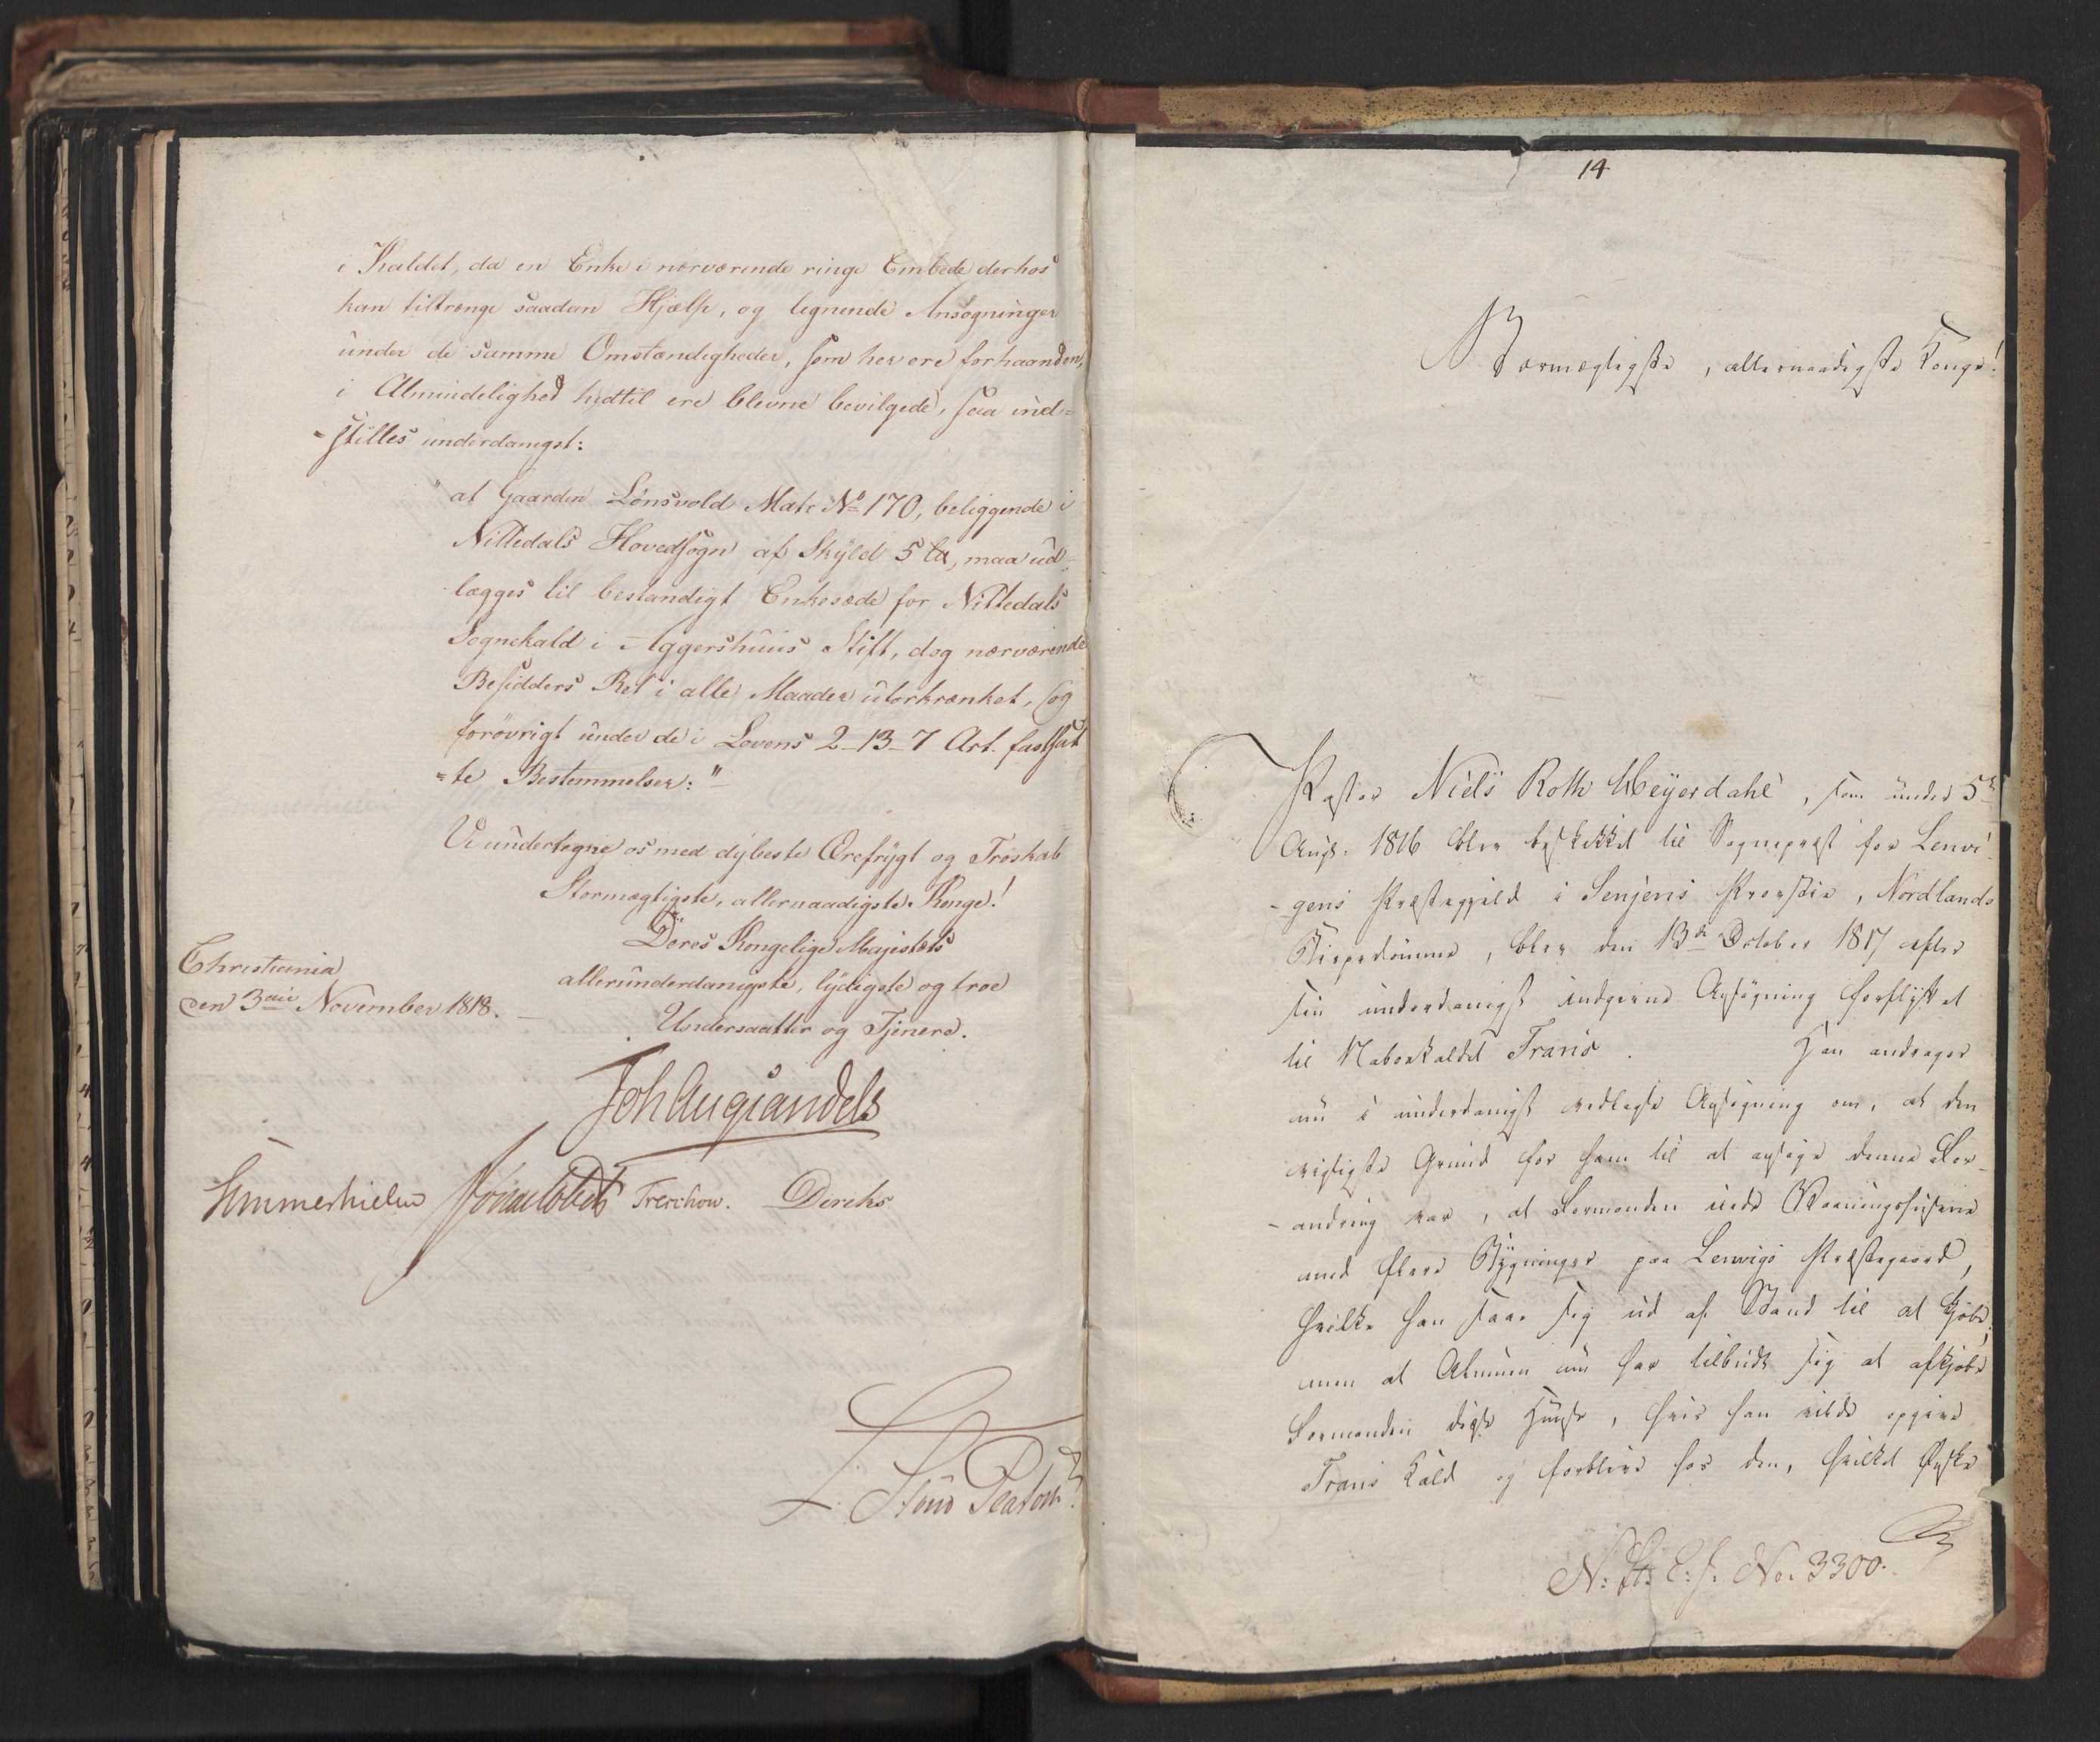 i Kaldet, da en Enke i nærværende ringe Embede derhos
kan tiltrænge saadan Hjælp, og lignende Ansøgninger
under de samme Omstændigheder, som her ere forhaanden,
i Almindelighed hidtil ere blevne bevilgede, saa ind=
=stilles underdanigst:
"at Gaarden Lönsvold Matr: No 170, beliggende i
Nittedals Hovedsogn af Skyld 5 , maa ud=
lægges til bestandigt Enkesæde for Nittedals
Sognekald i Aggershuus Stift, dog nærværende
Besidders Ret i alle Maader uforkrænket, og
forøvrigt under de i Lovens 2-13-7 Art. fastsat
=te Bestemmelser:"
Vi undertegne os med dybeste Ærefrygt og Troskab
Stormægtigste, allernaadigste Konge!
Deres Kongelige Majestæts
allerunderdanigste, lydigste og troe
Undersaatter og Tjenere.
Christiania
den 3die November 1818.
Joh Aug Sandels
Sommerhielm Treschow. Diriks
14
Stormægtigste, allernaadigste Konge!
Pastor Niels Roth Heyerdahl, som under 5te
Augs. 1816 blev beskikket til Sognepræst for Lenvi-
-gens Præstegjeld i Senjens Provstie, Nordlands
Bispedømme, blev den 13de October 1817 efter
sin underdanigst indgivne Ansøgning forflyttet
til Nabokaldet Tranö. Han andrager
nu i underdanigst vedlagte Ansøgning om, at den
vigtigste Grund for ham til at ansøge denne For-
-andring var, at Formanden eiede Vaaningshusene
med flere Bygninger paa Lenvigs Præstegaard,
hvilke han saae sig ud af Stand til at kjøbe;
men at Almuen nu har tilbudt sig at afkjøbe
Formanden disse Huuse, hvis han vilde opgive
Tranö Kald og forblive hos den, hvilket Ønske
N: St: E: J. No. 3300.